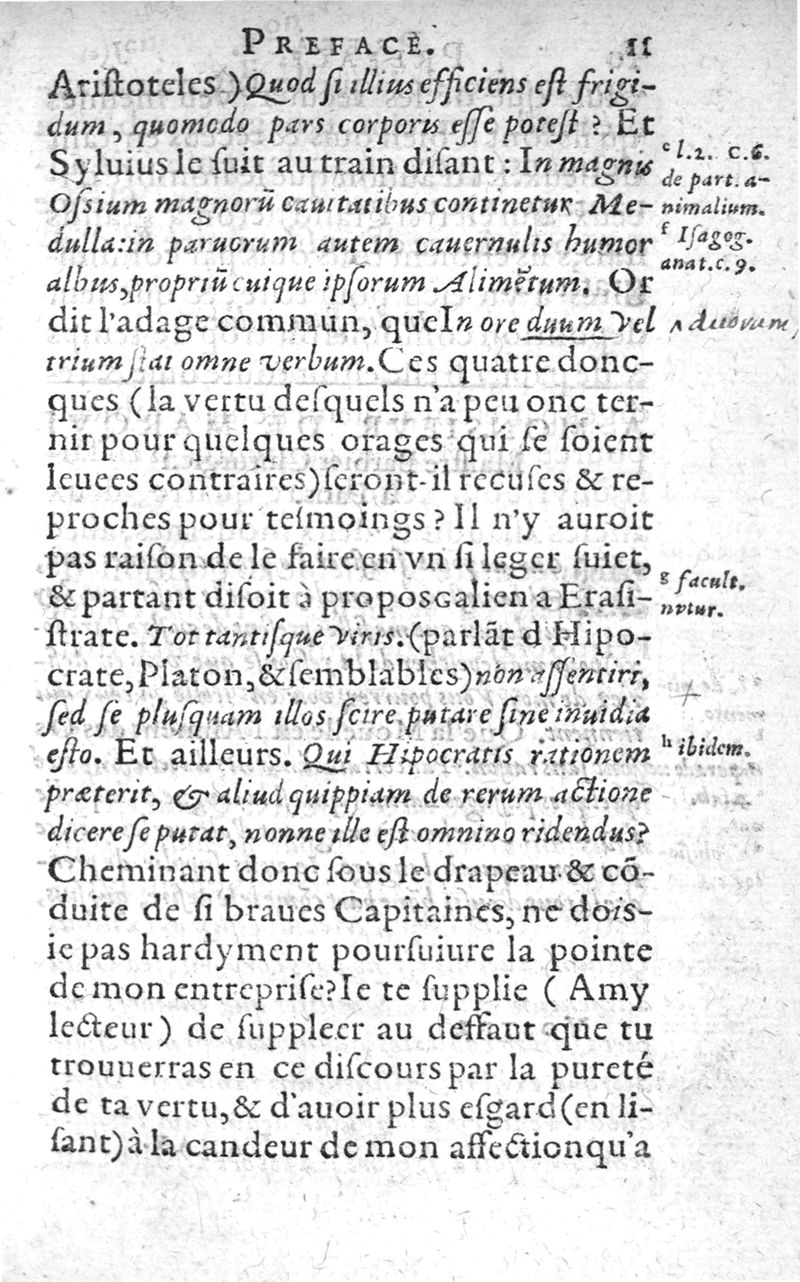 PREFACE. 11
Aristoteles.)Quod ſi illius efficiens eſt frigi-
dum, quomodo pars corporis eſſe poteſt? Et
Syluius le ſuit au train diſant: In magnis
Oſsium magnorū cauitatibus continetur Me-
dulla:in paruorum autem cauernulis humor
albus,propriū cuique ipſorum Alimētum. Or
dit l'adage commun, queIn ore duum Vel
trium ſtat omne verbum.Ces quatre donc-
ques (la vertu deſquels n'a peu onc ter-
nir pour quelques orages qui ſe ſoient
leuees contraires)ſeront-il recuſes & re-
proches pour teſmoings? Il n'y auroit
pas raiſon de le faire en vn ſi leger ſuiet,
& partant diſoit à proposGalien a Eraſi-
ſtrate. Tot tantiſque Viris.(parlāt d Hipo-
crate,Platon,&ſemblables)non aſſentiri,
ſed ſe pluſquam illos ſcire putare ſine inuidia
eſto. Et ailleurs. Qui Hipocratis rationem
præterit, & aliud quippiam de rerum actione
dicere ſe putat, nonne ille eſt omnino ridendus?
Cheminant donc ſous le drapeau & cō-
duite de ſi braues Capitaines, ne dois-
ie pas hardyment pourſuiure la pointe
de mon entrepriſe?Ie te ſupplie ( Amy
lecteur ) de ſuppleer au deffaut que tu
trouuerras en ce diſcours par la pureté
de ta vertu,& d'auoir plus eſgard(en li-
ſant)à la candeur de mon affectionqu'a
e l.2. c.6.
de part. a-
nimalium.
f Iſagog.
anat.c.9.
^ duorum,
g facult.
natur.
+
h ibidem.